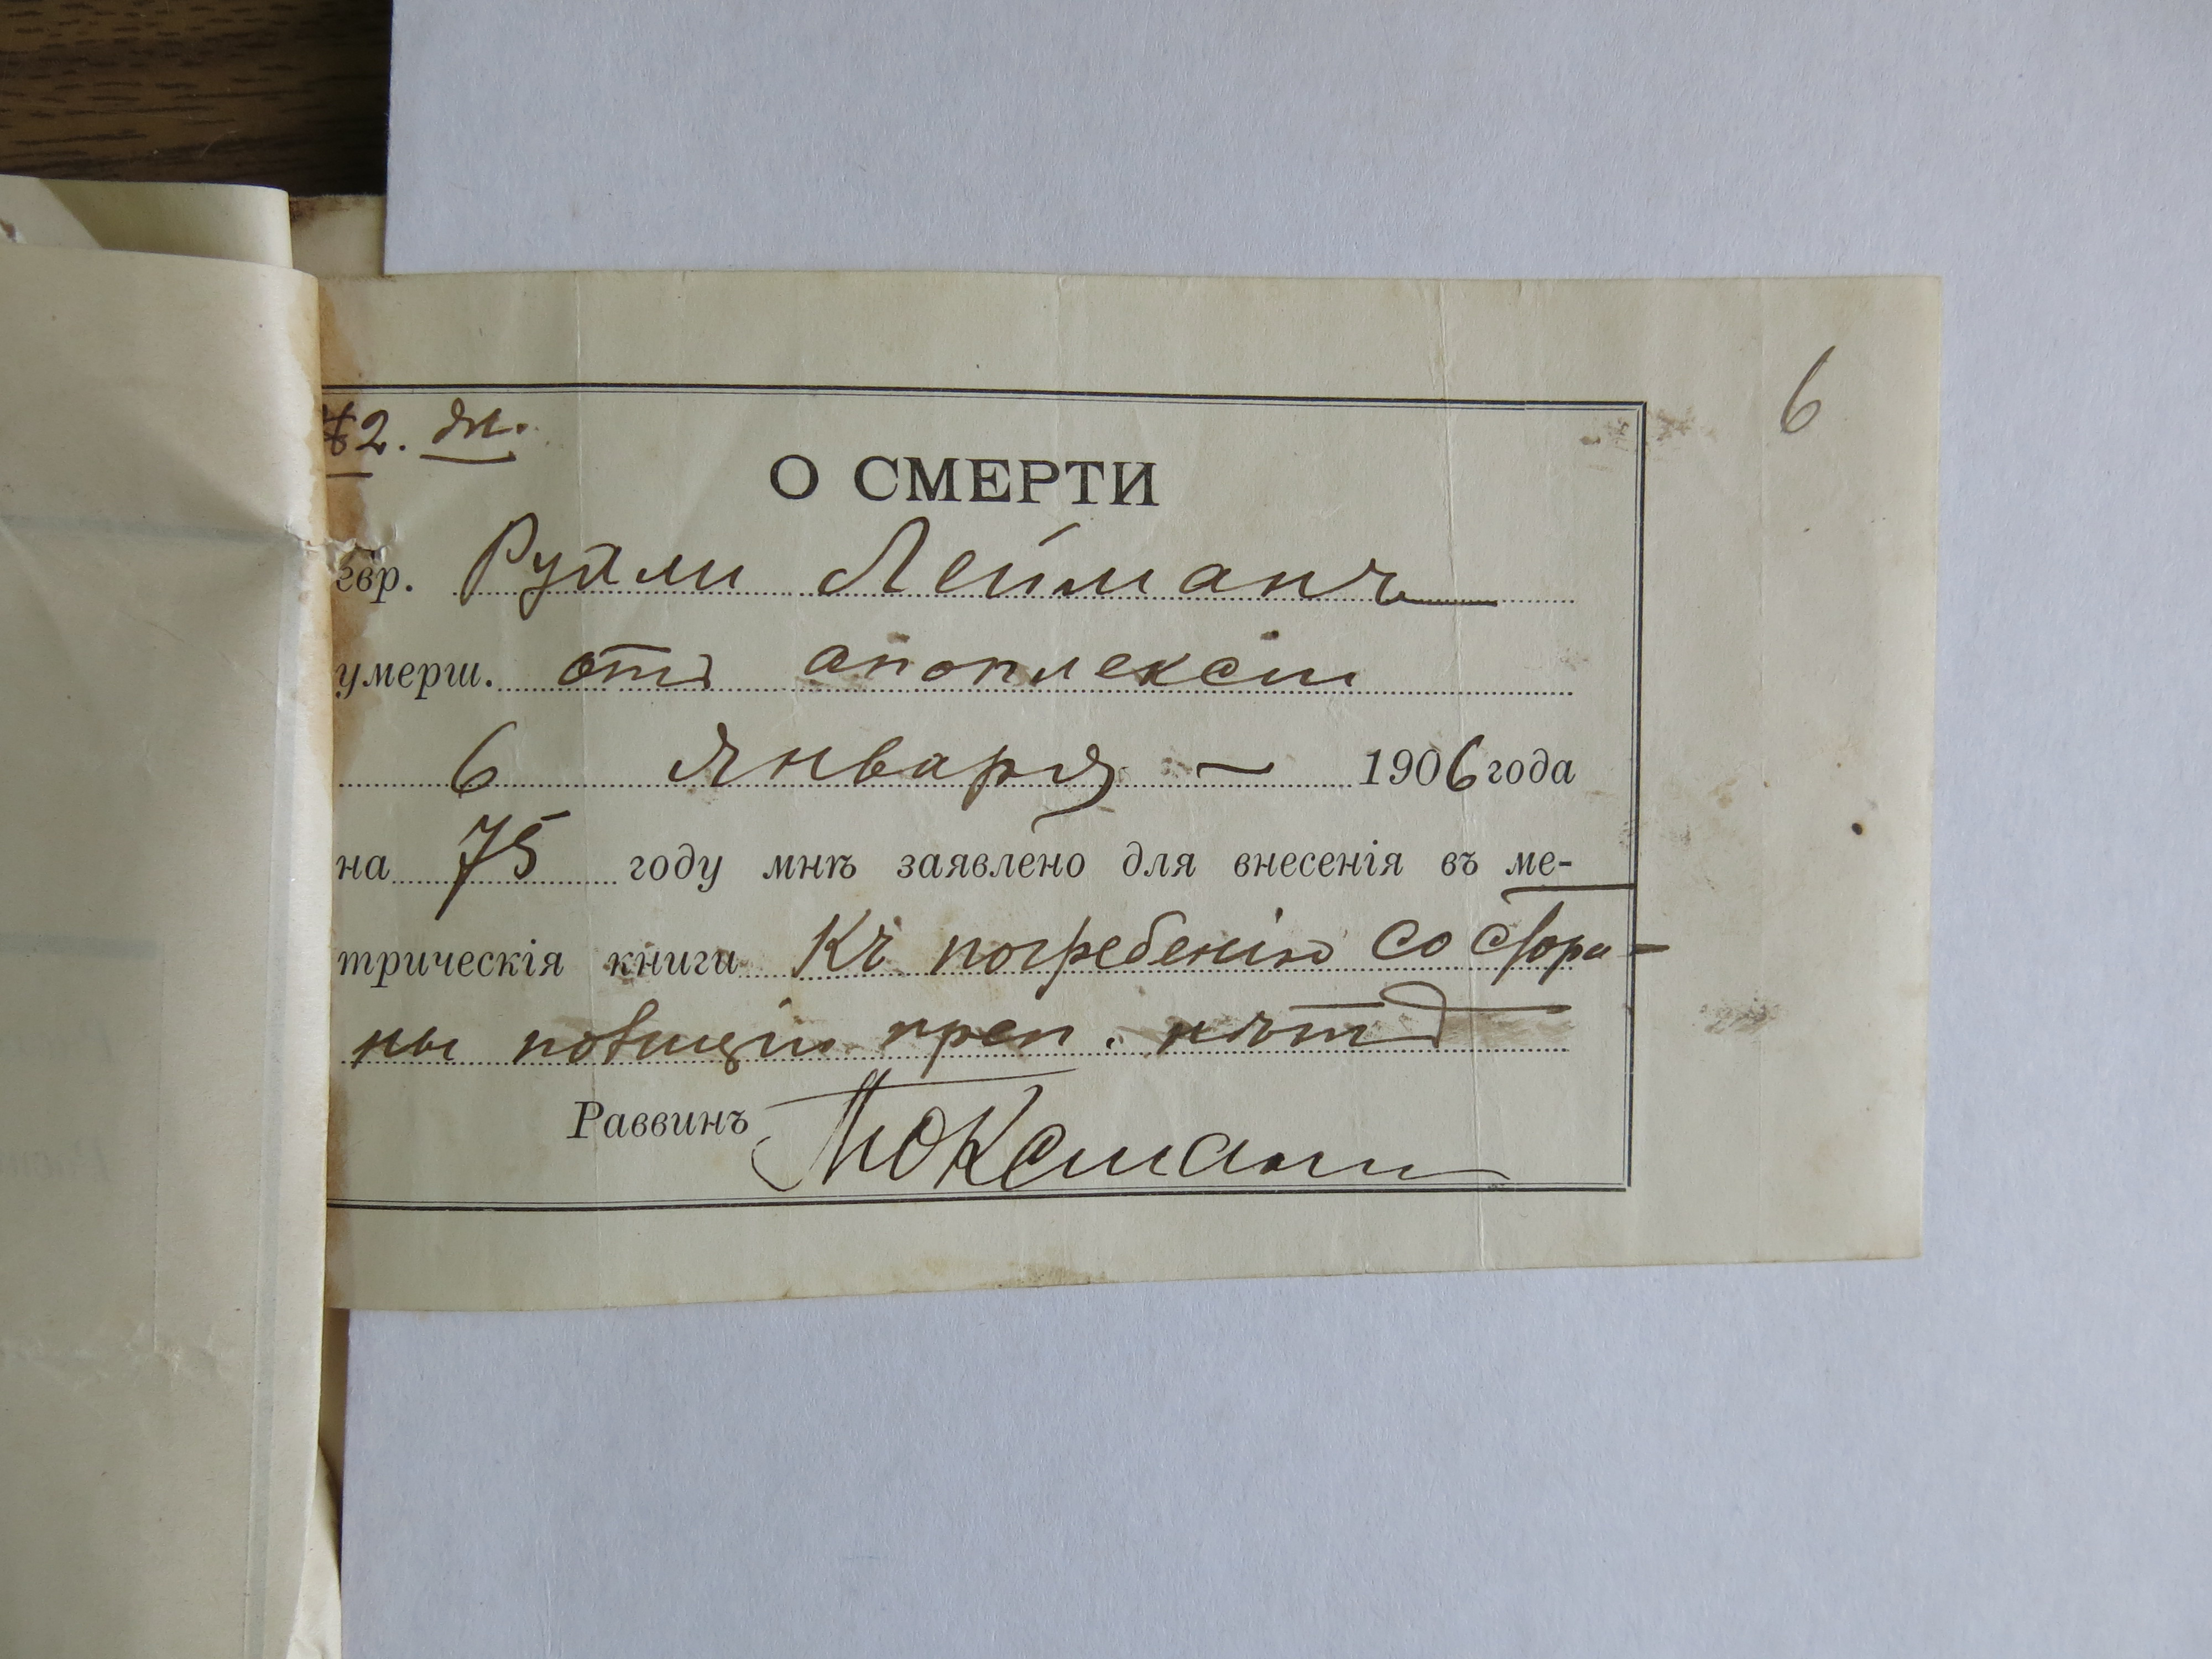 6
№2. жн.
О СМЕРТИ
евр. Рухли Лейманъ
умерш. отъ апоплексіи
6 Января - 1906 года
на 75 году мнѣ заявлено для внесенія въ ме-
трическія книги Къ погребенію со сторо-
ны полиціи преп. нѣтъ
Раввинъ